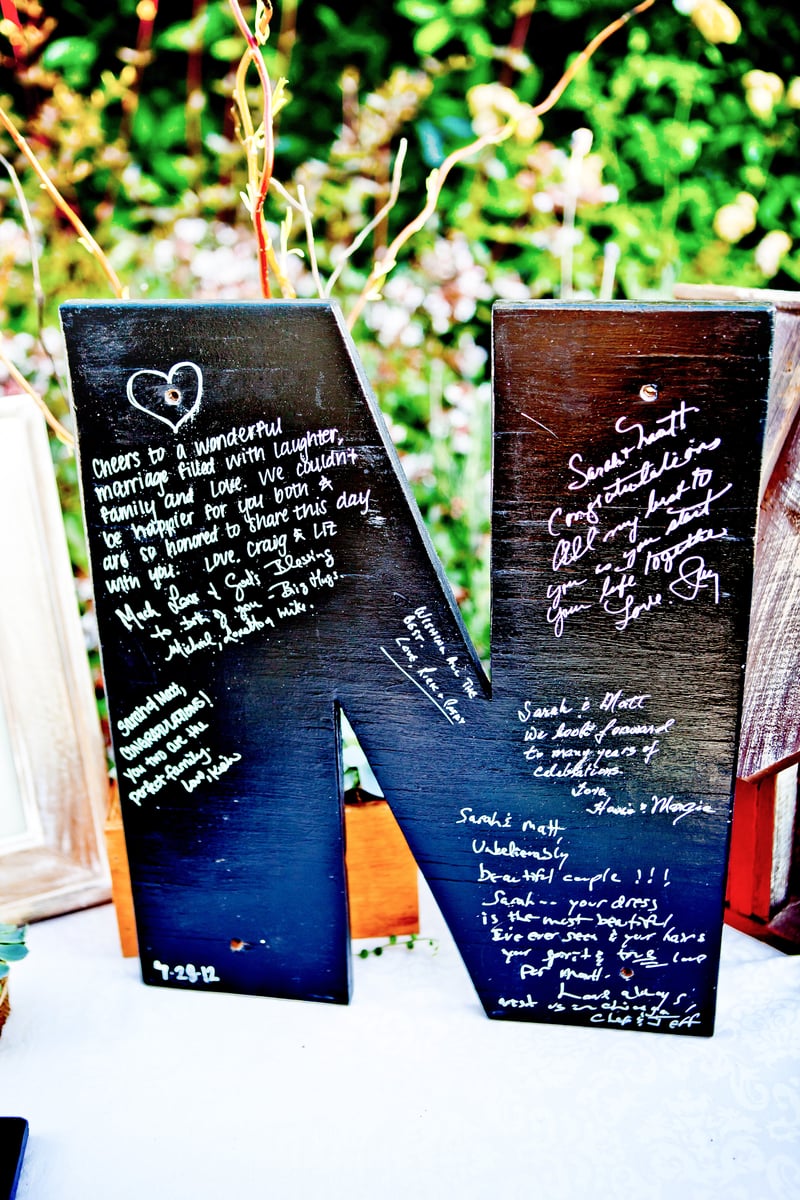 Cheers to a wonderful
marriage filled with laughter,
family and love. We couldn't
be happier for you both &
are so honored to share this day
with you. Love, Craig & Liz
Much Love & God's Blessing
to both of you Big Hugs.
Michael, Mike.
Sarah & Matt,
CONGRATULATIONS!
You two are the
perfect family.
Love,
9-29-12
Wishing all the
Best.
Love,
Sarah + Matt
Congratulations
All my best to
you as you start
your life together
Love.
Sarah & Matt
We look forward
to many years of
celebrations.
Love
& Margie
Sarah & Matt
Unbelievably
beautiful couple !!!
Sarah -- your dress
is the most beautiful
I've ever seen & your hair &
your & true love
for Matt.
Love always,
& Jeff